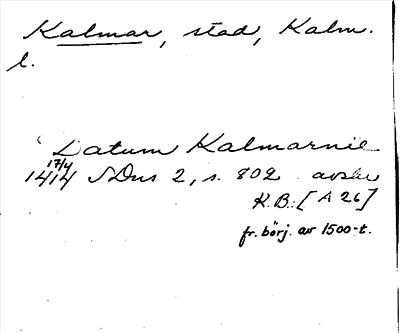 Kalmar, stad, Kalm.
l.
Datum Kalmarnie
17/4
1414 SDns 2, s. 802 avskr
K.B.: [A 26]
fr. börj. av 1500-t.